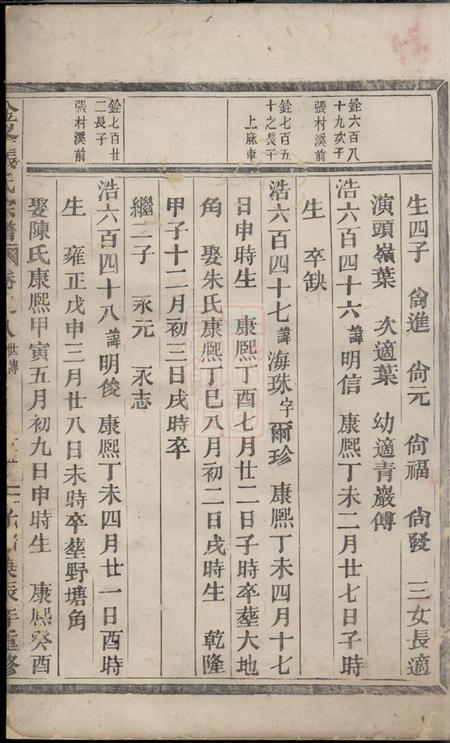 銓六百八
十九次子
張村溪前
銓七百五
十之長子
上麻車
銓七百廿
二長子
張村溪前
生四子 尙進 尙元 尙福 尙發 三女長適
演頭嶺葉 次適葉 幼適青巖傅
浩六百四十六諱明信 康熙丁未二月廿七日子時
生 卒缺
浩六百四十七諱海珠字爾珍 康熙丁未四月十七
日申時生 康熙丁酉七月廿二日子時卒塟大地
角 娶朱氏康熙丁巳八月初二日戌時生 乾隆
甲子十二月初三日戌時卒
繼二子 永元 永志
浩六百四十八諱明俊 康熙丁未四月廿一日酉時
生 雍正戊申三月廿八日未時卒塟野塘角
娶陳氏康熙甲寅五月初九日申時生 康熙癸酉
氏宗譜 卷之八 世傳
重修